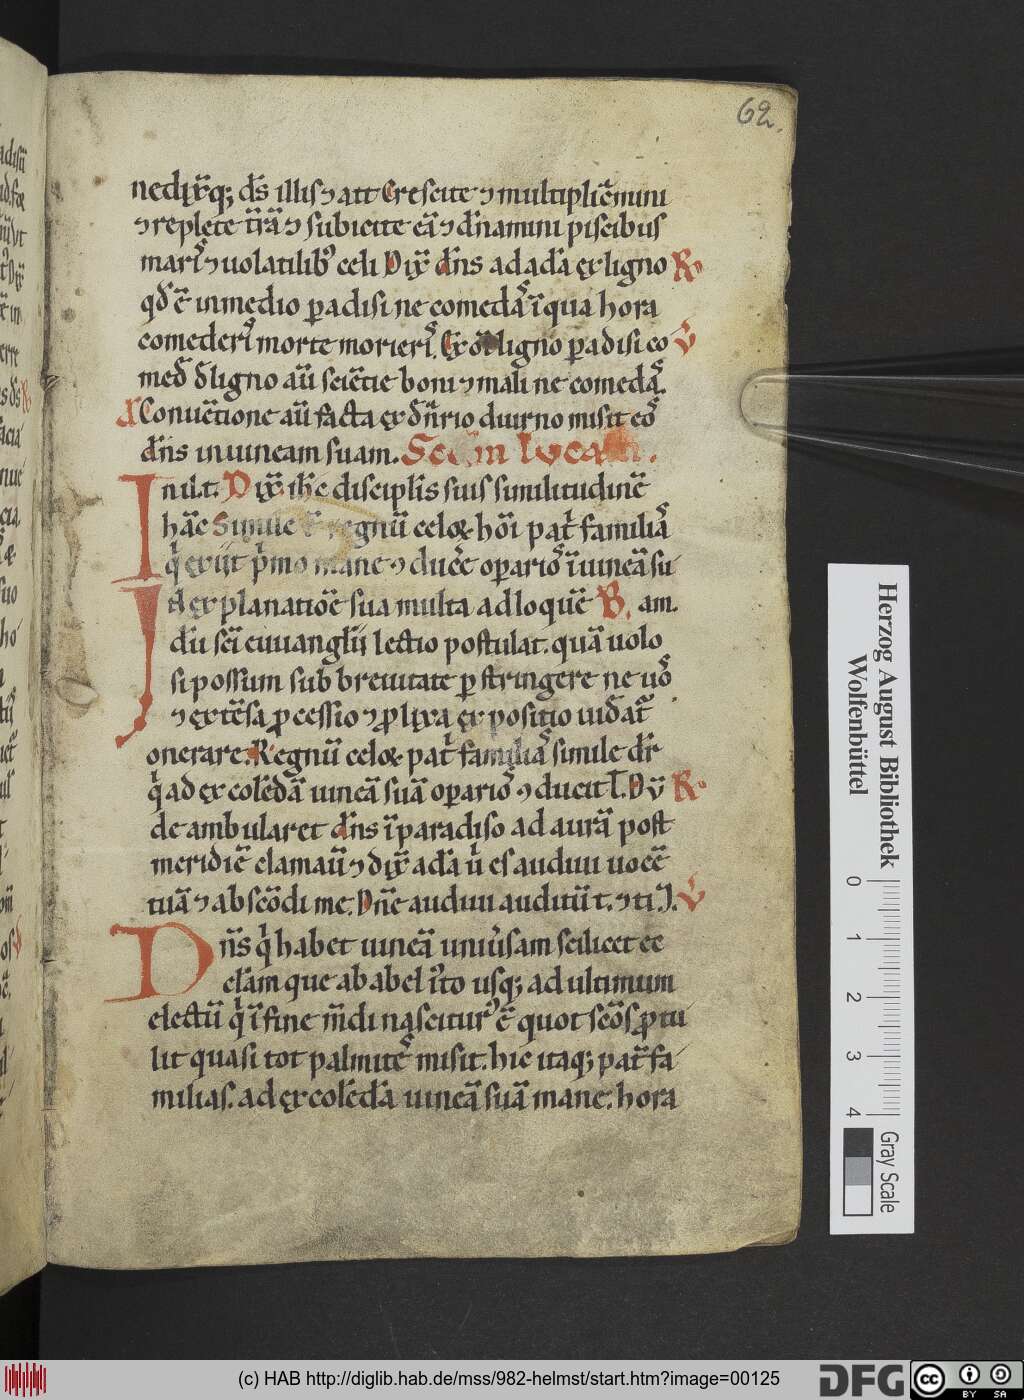 62.
nedixitq; ds̄ illis ⁊ ait Crescite ⁊ multiplicamini
⁊ replete tr̄ā ⁊ subicite eā ⁊ dn̄amini piscibus
maris ⁊ uolatilib᷒ celi Dix̄ dn̄s ad adā ex ligno R
qd̄ ē in medio paradisi ne comedas ī qua hora
comederis morte morieris. Ex om̄i ligno paradisi co V
med̄ d̄ ligno aū sciētie boni ⁊ mali ne comedas.
A Conuētione aū facta ex dn̄rio diurno misit eos
dn̄s in uineam suam. Secdm Lucam.
In il.t. Dix̄ ih̄c discipl̄is suis similitudinē
hāc Simile ē regnū celoꝝ hōi patri familias
q exiit p̄mo mane ⁊ ducēe operarios ī uineā su
Id explanatiōē sua multa ad loquēe B. am.
dū sc̄i euuanglīi lectio postulat. quā uolo
si possum sub breuitate perstringere ne uos
⁊ extēsa processio ⁊ prolixa expositio uideat
onerare. Regnū celoꝝ patri familias simile dr̄
q ad excolēdā uineā suā operarios ⁊ ducit t. Dū R
deambularet dn̄s ī paradiso ad aurā post
meridiē clamauit ⁊ dix̄ adā u es audiui uocē
tuā ⁊ abscōdi me. Dn̄e audiui auditū t. ⁊ ti). V
Dn̄s q habet uineā uniuersam scilicet ec
clām que ab abel iusto usq; ad ultimum
electū q ī fine mūdi nasciturus ē quot scōs protu
lit quasi tot palmites misit. hic itaq; paterfa
milias. ad excolēdā uineā suā mane. hora
Herzog August Bibliothek
Wolfenbüttel
0 1 2 3 4
Gray Scale
(c) HAB http://diglib.hab.de/mss/982-helmst/start.htm?image=00125
DFG
cc BY SA